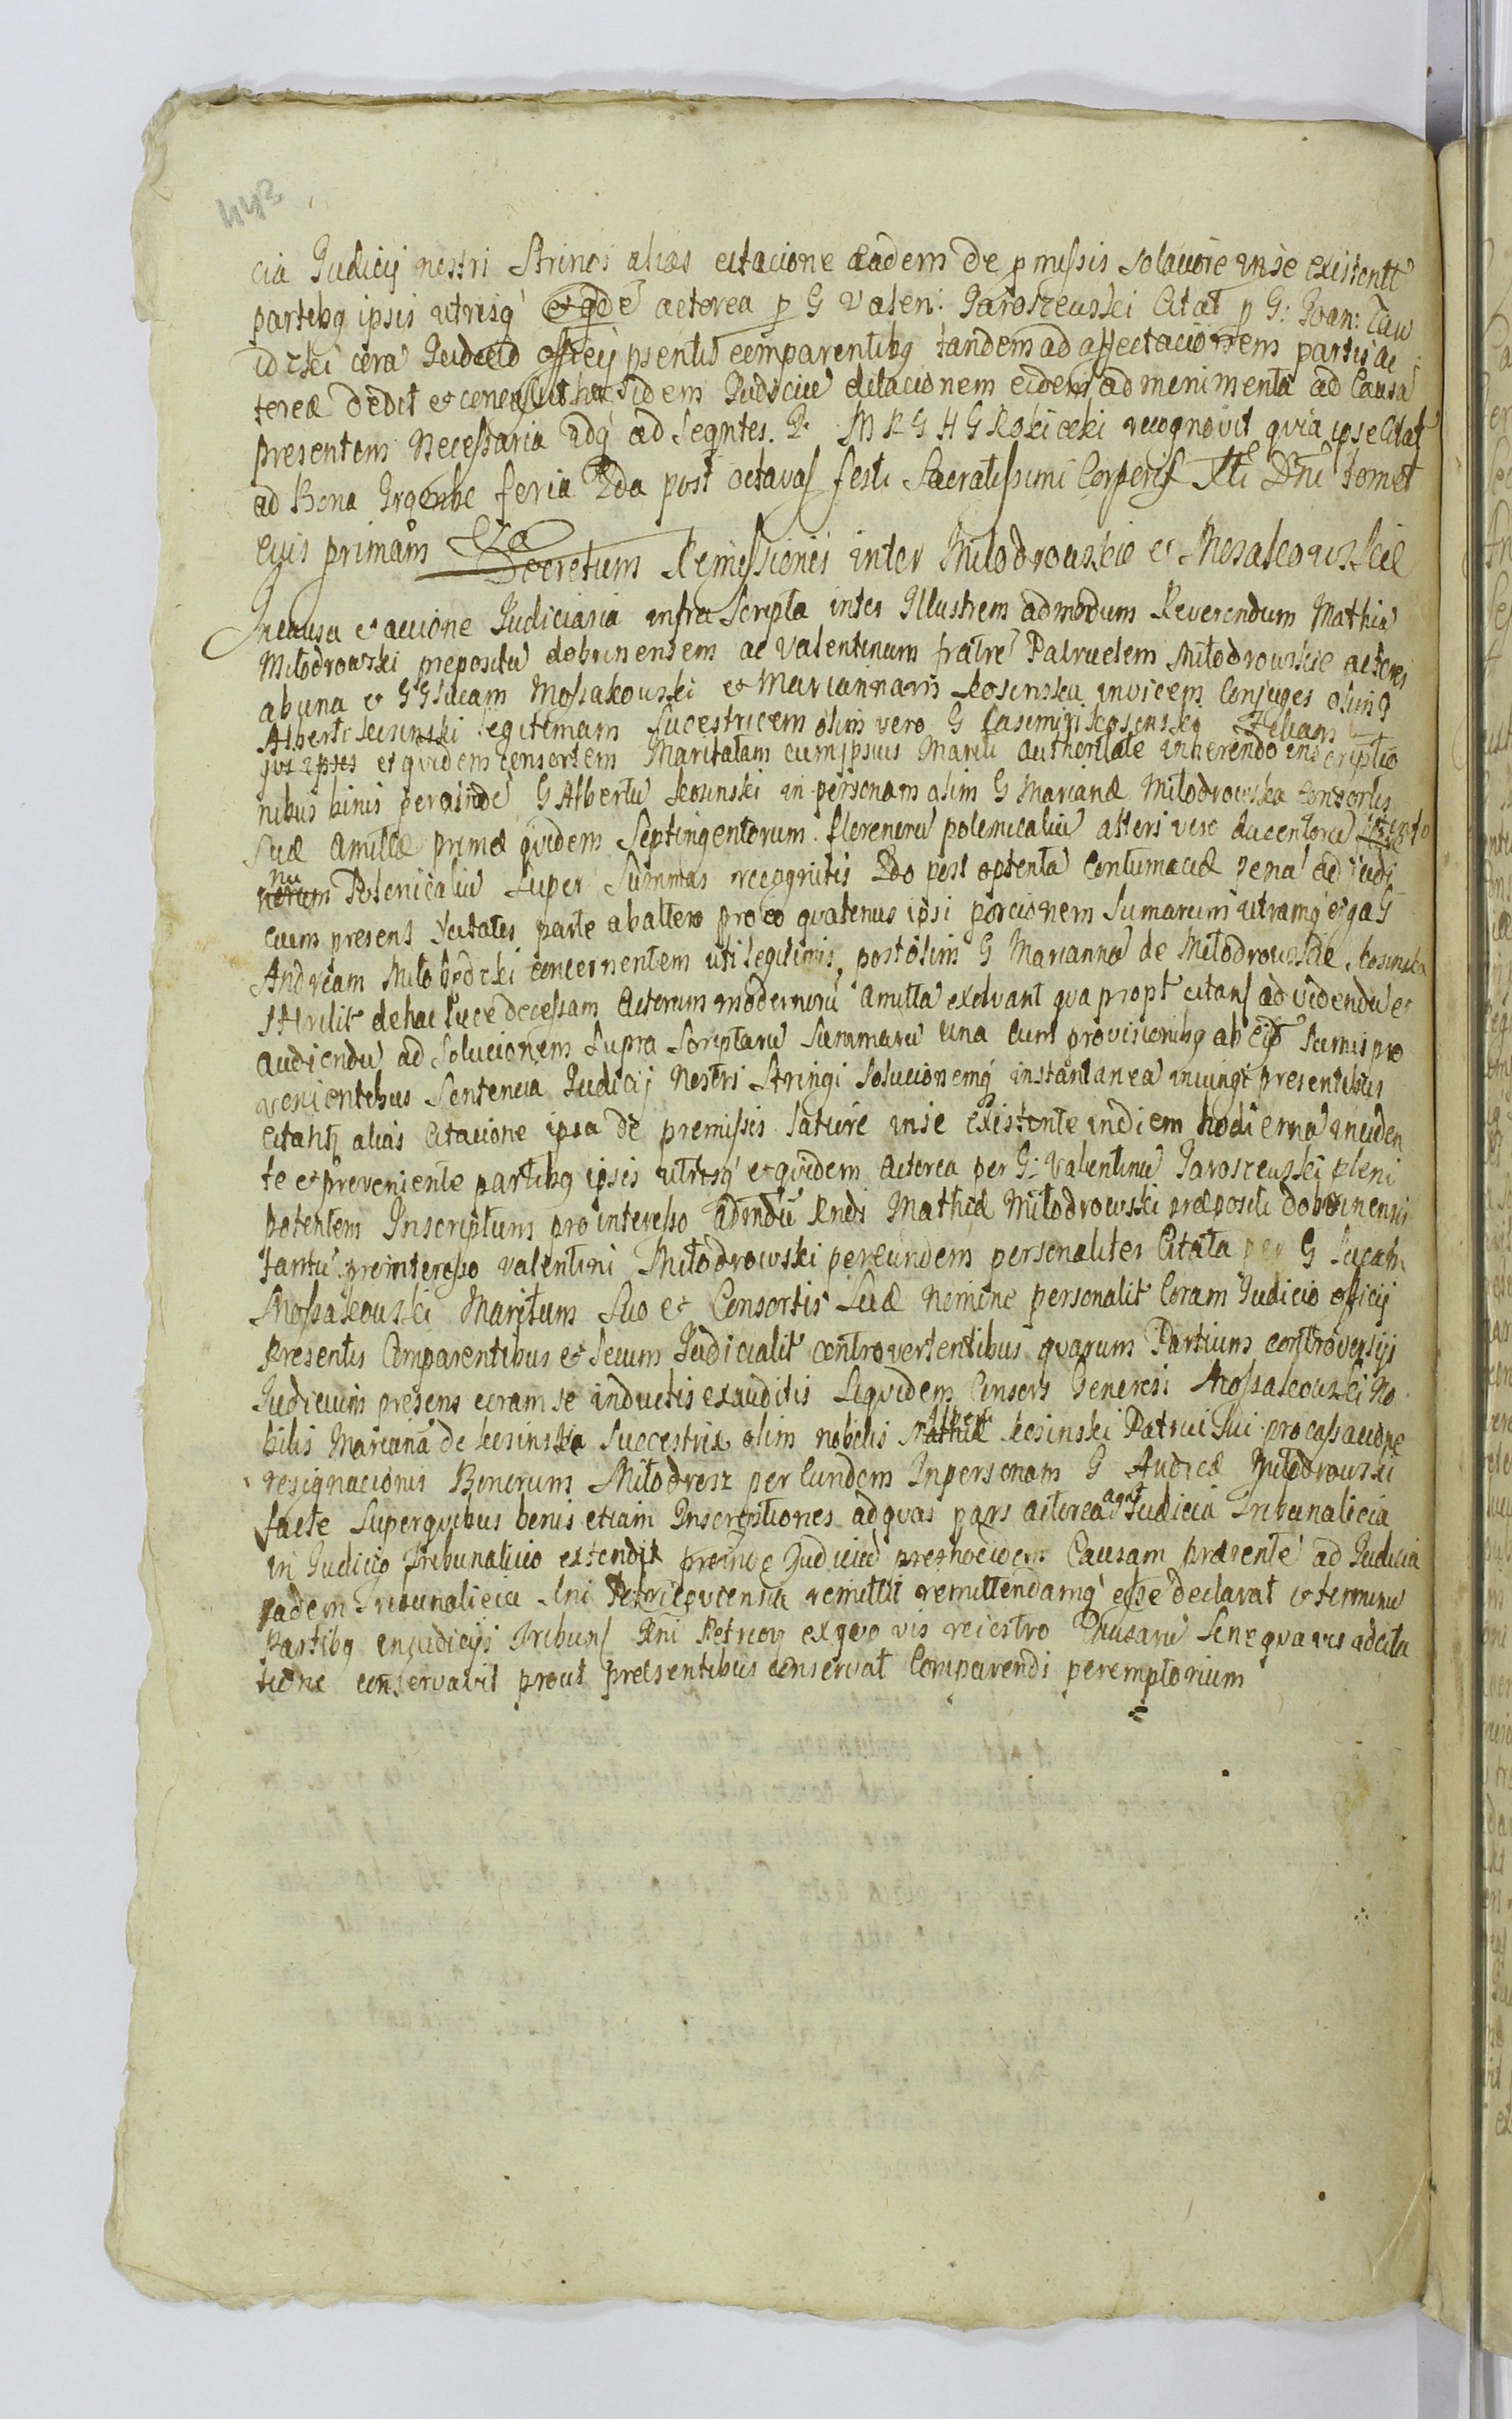 443
cia Judicij nostri Stringi alias citacione eadem de pmissis solaciore in se existentt
partibq ipsis utrisq et qde actorea p G Valen: Jaroszewski Citat p G: Joan: Zaw
idzki cora Judicio officij psentis comparentibq tandem ad affectacionem partis ac
toreæ dedit et concessit idem Judiciu dilacionem eidem ad munimenta ad Causa
presentem Necessaria 2dq ad Seqntes. M R G H G Rokicki recognovit quia ipse Citat
ad Bona feria 2da post octavas festi Sacratissimi Corporis Xti Dni
eius primam
Decretum Remissionis inter Miłodrowskie et Mosakowskie
In causa et accione Judiciaria infra Scripta inter Illustrem admodum Reverendum Mathia
Miłodrowski prepositu dobrinensem ac Valentinum fratre Patruelem Miłodrowskie actores
ab una et GG Lucam Mossakowski et Mariannam Kosinska invicem Conjuges olim G
Alberti Kosinski legitimam Sucestricem olim vero G Casimiri Kosinski
et quidem consortem Maritalam cum ipsius Mariti authoritate inherendo inscriptio
nibus binis perainde G Albertu Kosinski in personam olim G Marianæ Miłodrowska Consortis
Suæ Amittæ primæ quidem Septingentorum florenoru polonicaliu alteri vero ducentoru
Polonicaliu Super Summas recognitis 2do post optenta Contumaciæ pena ad judi
cium presens Citatis parte ab altero pro eo quatenus ipsi porcionem Sumarum utramq erga G
Andream concernentem uti legitimis post olim G Marianna de Miłodrowskie Kosinska
Sterilit de hac luce decessam Actorum modernoru Amitta exolvant qua propt citans ad videndu et
audiendu ad Solucionem Supra Scriptaru Summaru una cum provisionibq ab eis Sumis pro
venientibus Sentencia Judicij Nostri Stringi Solucionemq instantanea iniungi presentibus
Citatis alias Citacione ipsa de premissis latiore in se existente in diem hodierna inciden
te et proveniente partibq ipsis utrisq et quidem Actorea per G: Valentinu Jaroszewski pleni
potentem Inscriptum pro interesso Admdu Rndi Mathiæ Miłodrowski præpositi dobrinensis
tantu pro interesso Valentini Miłodrowski per eundem personaliter Citata per G Lucam
Mossakowski Maritum Suo et Consortis Suæ Nomine personalit Coram Judicio officij
Presentis Comparentibus et Secum Judicialit controvertentibus quarum Partium controversijs
Judicium presens coram se inductis exauditis Siquidem Consors Generosi Mossakowski No
bilis Mariana de Kosinskie Succestrix olim nobilis Mathiæ Alberti Kosinski Patrui Sui pro cassacione
resignacionis Bonorum Miłodroz per Eundem In personam G Andreæ Miłodrowski
facte Superquibus bonis etiam Inscriptiones ad quas pars actorea agit Judicia Tribunalicia
in Judicio Tribunalicio extendit proinde Judiciu premocioem Causam præsente ad Judicia
eadem Tribunalicia Petricoviensia remittit remittendamq esse declarat et terminu
Partibq in judicijs Tribun Rni Petricov ex quo vis reiestro Causaru Sine qua vis adcita
tione conservavit prout præsentibus conservat Comparendi peremptorium